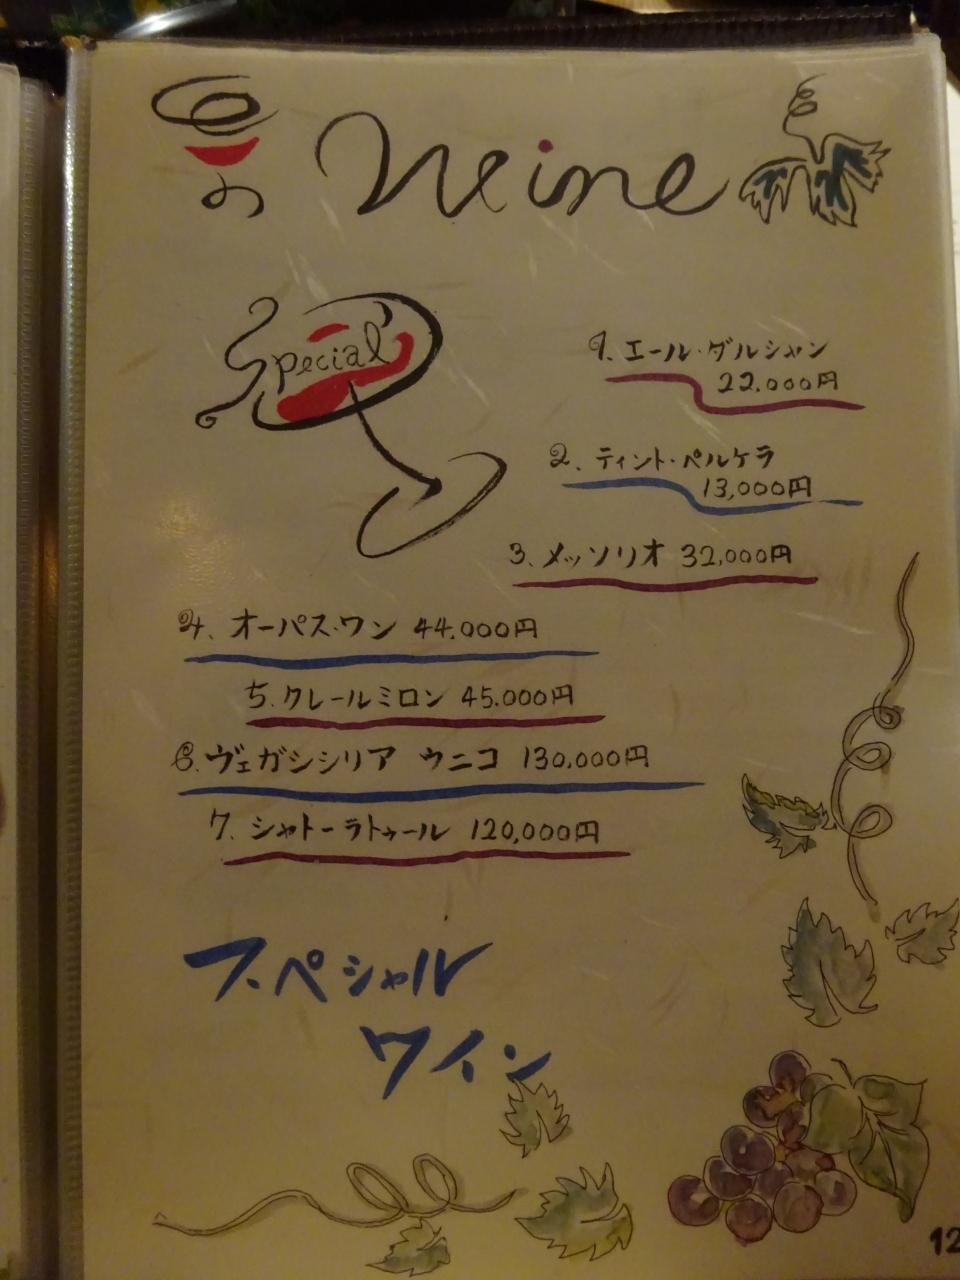 Weine
Special
1. エール・ダルシャン
22.000円
2. ティント・ペルケラ
13,000円
3. メッソリオ 32,000円
4. オーパス・ワン 44.000円
5. クレールミロン 45.000円
6. ヴェガシシリア ウニコ 130,000円
7. シャトーラトゥール 120,000円
スペシャル
ワイン
12